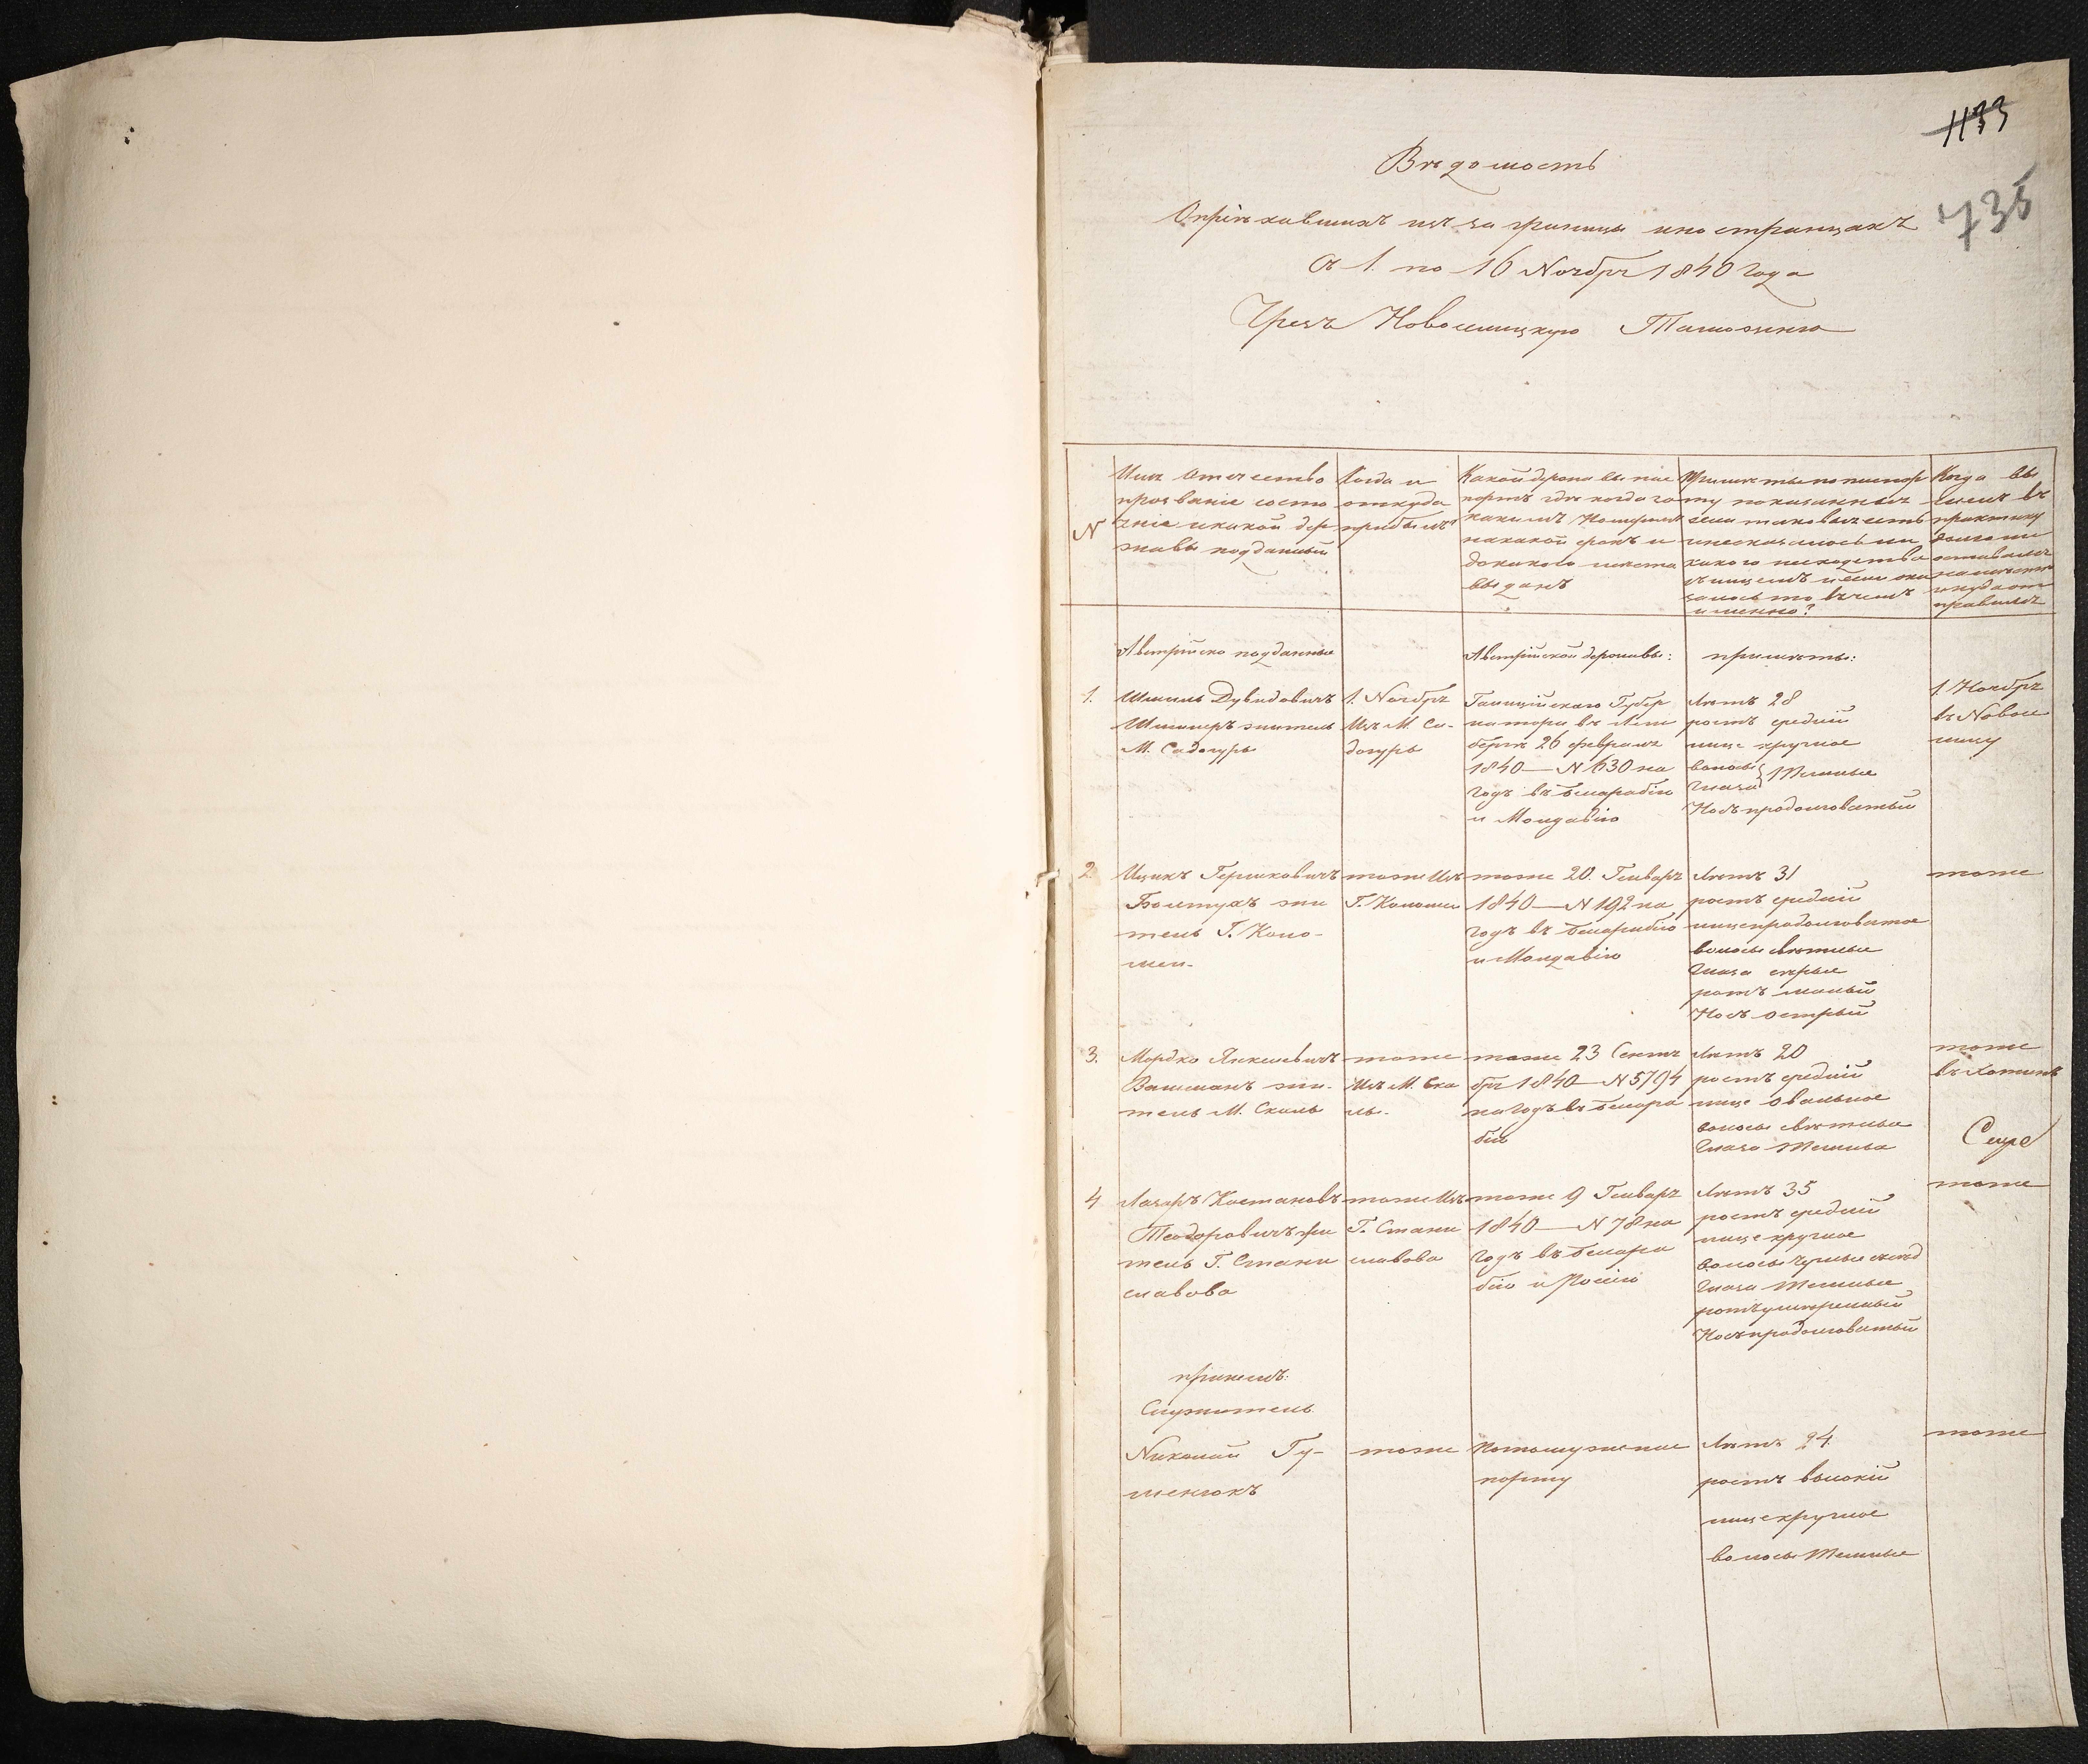 1133
735
Вѣдомость
О пріѣхавшихъ изъ за границы иностранцахъ
съ 1. по 16 Ноября 1840 года
Чрезъ Новоселицкую Таможню
N
Имя отечество
прозваніе состо
яніе и какой дер
жавы подданный
Когда и
откуда
прибылъ
Какой державы пас
портъ гдѣ когда за
какимъ Номеромъ
на какой срокъ и
до какого мѣста
выданъ
Примѣты по паспор
ту показанныя
если таковыя есть
и неоказалось ли
какого несходства
съ лицемъ и если ока
залось то въ чемъ
именно?
Когда вы
пущенъ въ
практику
долго ли
оставался
на мѣстѣ
и куда от
правился
Австрійско подданные
Австрійской державы:
примѣты:
1.
Шмиль Дувидовичъ
Шмилеръ житель
М. Садогуры
1. Ноября
Изъ М. Са-
догуры
Галиційскаго Губер
натора въ Лем
бергѣ 26 февраля
1840 — N 630 на
годъ въ Бесарабію
и Молдавію
Лѣтъ 28
ростъ средній
лице круглое
волосы } темные
глаза
Носъ продолговатый
1. Ноября
въ Новосе
лицу
2.
Ицикъ Гершковичъ
жи
тель Г. Коло-
меи-
тоже Изъ
Г. Коломеи
тоже 20. Генваря
1840 — N 192 на
годъ въ Бесарабію
и Молдавію
Лѣтъ 31
ростъ средній
лице продолговатое
волосы свѣтлые
глаза сѣрые
ротъ малый
Носъ острый
тоже
3.
Мордко Янкелевичъ
Вашманъ жи-
тель М. Скалы
тоже
Изъ М. Ска
лы-
тоже 23 Сентя
бря 1840 — N 5794
на годъ въ Бесара
бію
Лѣтъ 20
ростъ средній
лице овальное
волосы свѣтлые
глаза темные
тоже
въ Хотинъ
4
Лазарь Костаковъ
Теодоровичъ жи
тель Г. Стани
славова
тоже Изъ
Г. Стани
славова
тоже 9 Генваря
1840 — N 78 на
годъ въ Бесара
бію и Россію
Лѣтъ 35
ростъ средній
лице круглое
волосы черные
глаза темные
ротъ умѣренный
Носъ продолговатый
тоже
при немъ:
Служитель
Николай Гу-
менюкъ
тоже
по томуже пас
порту
Лѣтъ 24
ростъ высокій
лице круглое
волосы темные
тоже